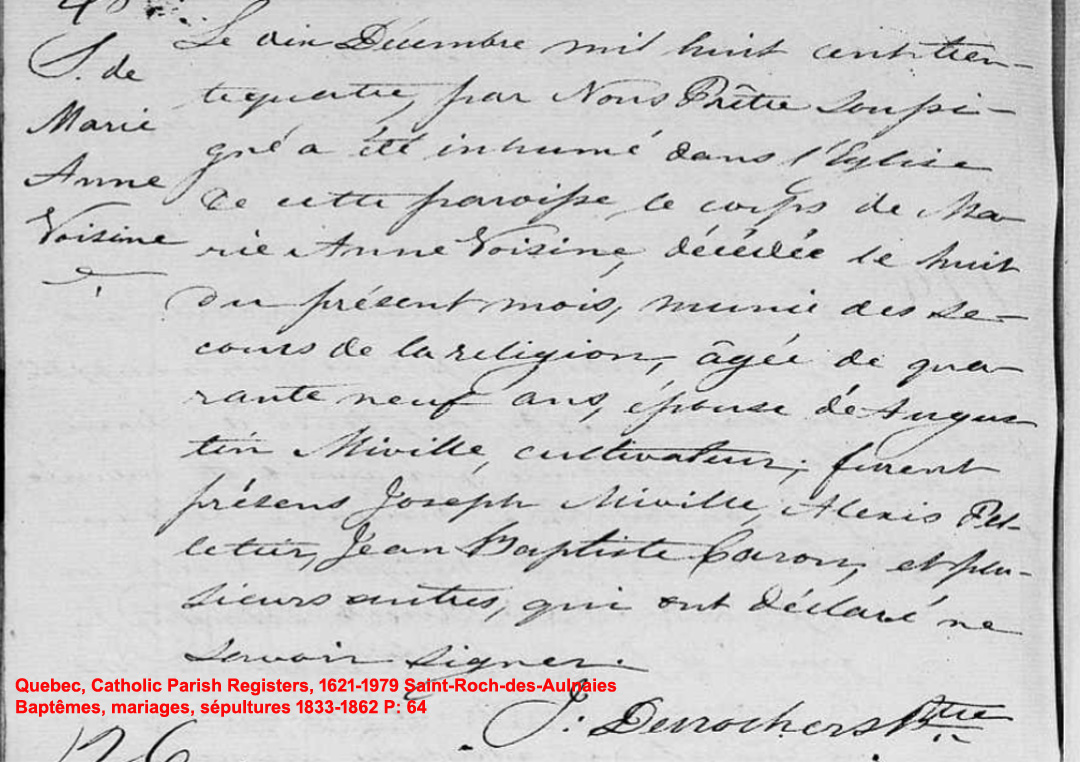 S. de
Marie
Anne
Voisine
Le dix Décembre mil huit cent tren-
tequatre, par Nous Prêtre soussi-
gné a été inhumé dans l'Eglise
de cette paroisse le corps de Ma-
rie Anne Voisine, décédée le huit
du présent mois, munie des se-
cours de la religion, âgée de qua-
rante neuf ans, épouse de Augus-
tin Miville cultivateur; furent
présens Joseph Miville, Alexis Pel-
letier, Jean Baptiste Caron, et plu-
sieurs autres, qui ont déclaré ne
savoir signer.
J. Derrochers Ptre
Quebec, Catholic Parish Registers, 1621-1979 Saint-Roch-des-Aulnaies
Baptêmes, mariages, sépultures 1833-1862 P: 64